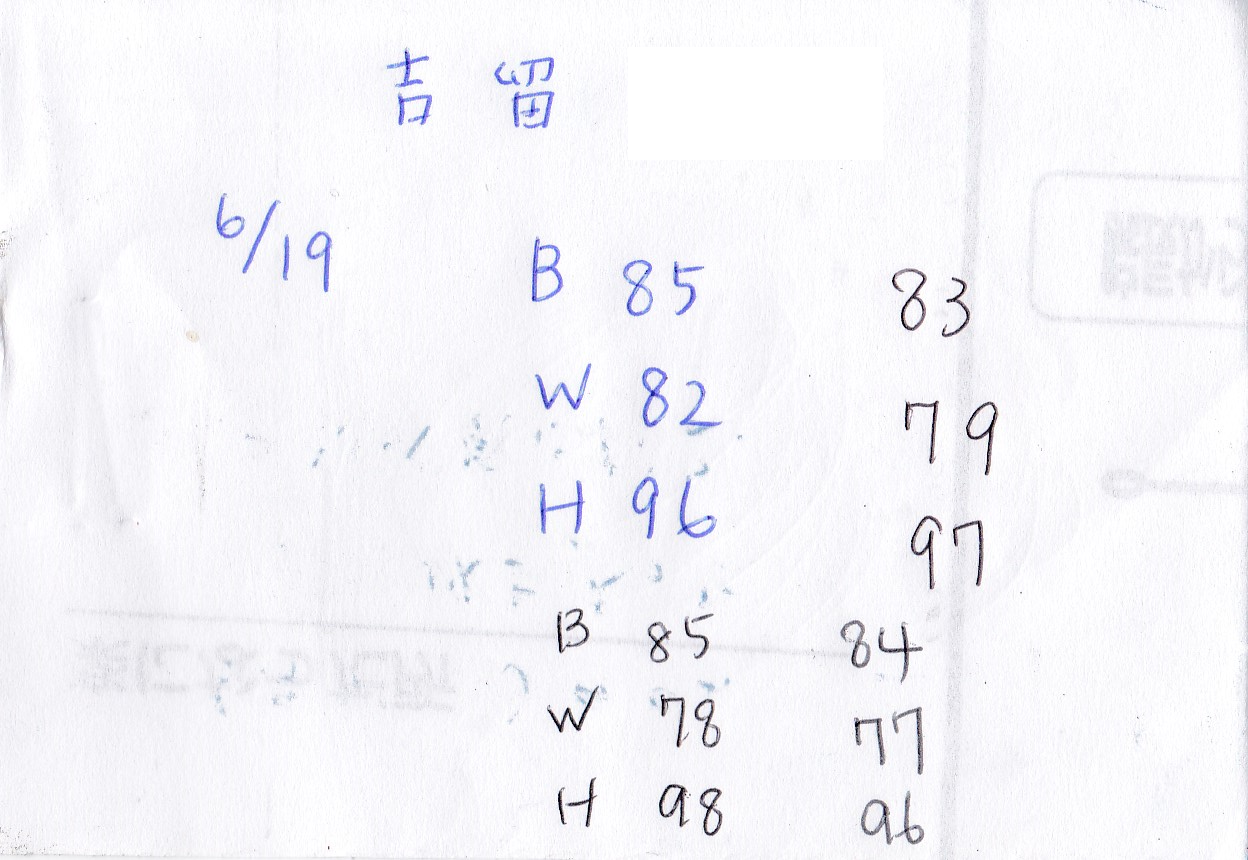 吉留
6/19
B 85 83
W 82 79
H 96 97
B 85 84
W 78 77
H 98 96